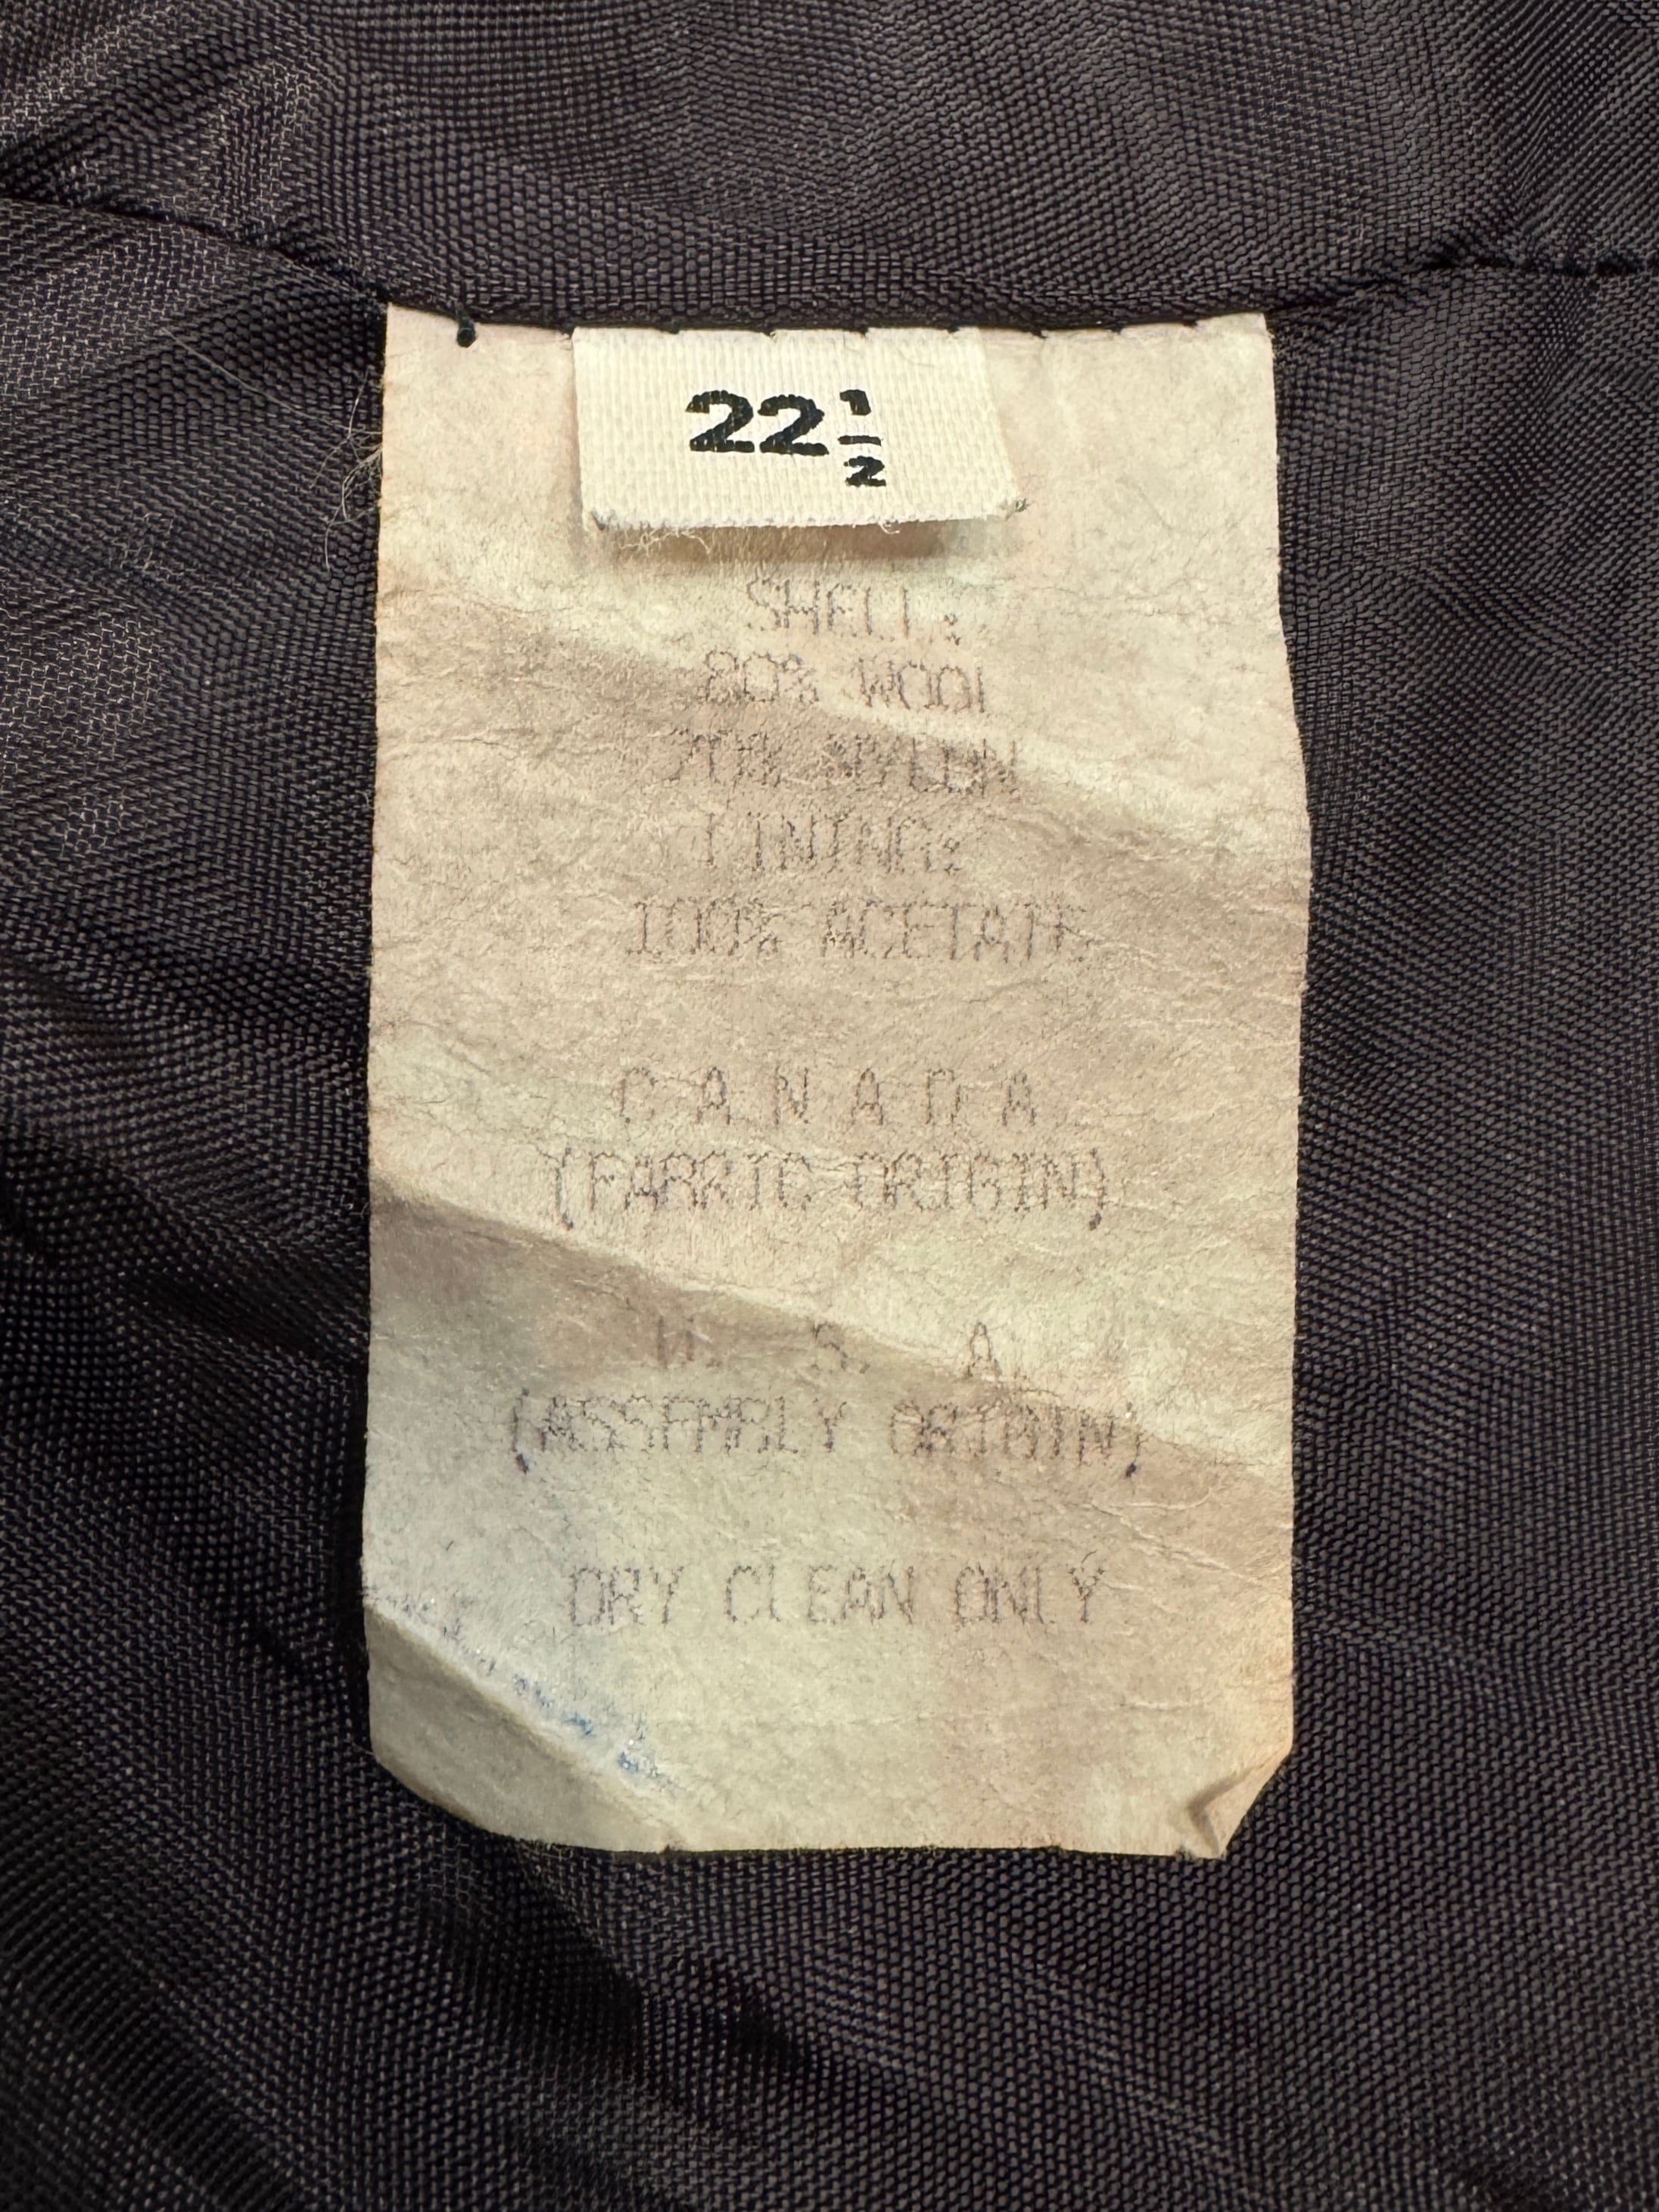 22½
SHELL:
80% WOOL
20% NYLON
LINING:
100% ACETATE
C A N A D A
(FABRIC ORIGIN)
U. S. A.
(ASSEMBLY ORIGIN)
DRY CLEAN ONLY